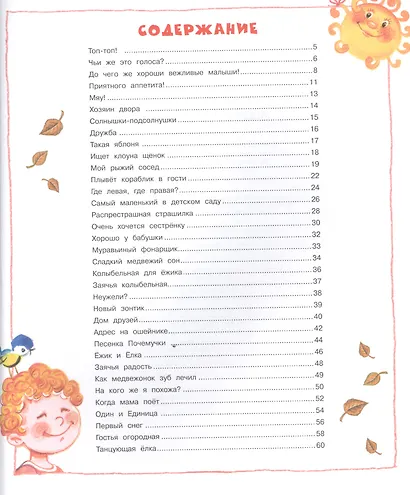 СОДЕРЖАНИЕ
Топ-топ! 5
Чьи же это голоса? 6
До чего же хороши вежливые малыши! 8
Приятного аппетита! 11
Мяу! 13
Хозяин двора 14
Солнышки-подсолнушки 15
Дружба 16
Такая яблоня 17
Ищет клоуна щенок 18
Мой рыжий сосед 19
Плывёт кораблик в гости 22
Где левая, где правая? 24
Самый маленький в детском саду 26
Распрестрашная страшилка 28
Очень хочется сестрёнку 30
Хорошо у бабушки 32
Муравьиный фонарщик 33
Сладкий медвежий сон 34
Колыбельная для ёжика 36
Заячья колыбельная 37
Неужели? 38
Новый зонтик 39
Дом друзей 40
Адрес на ошейнике 42
Песенка Почемучки 44
Ёжик и Ёлка 46
Заячья радость 48
Как медвежонок зуб лечил 49
На кого же я похожа? 50
Когда мама поёт 52
Один и Единица 54
Первый снег 56
Гостья огородная 58
Танцующая ёлка 60